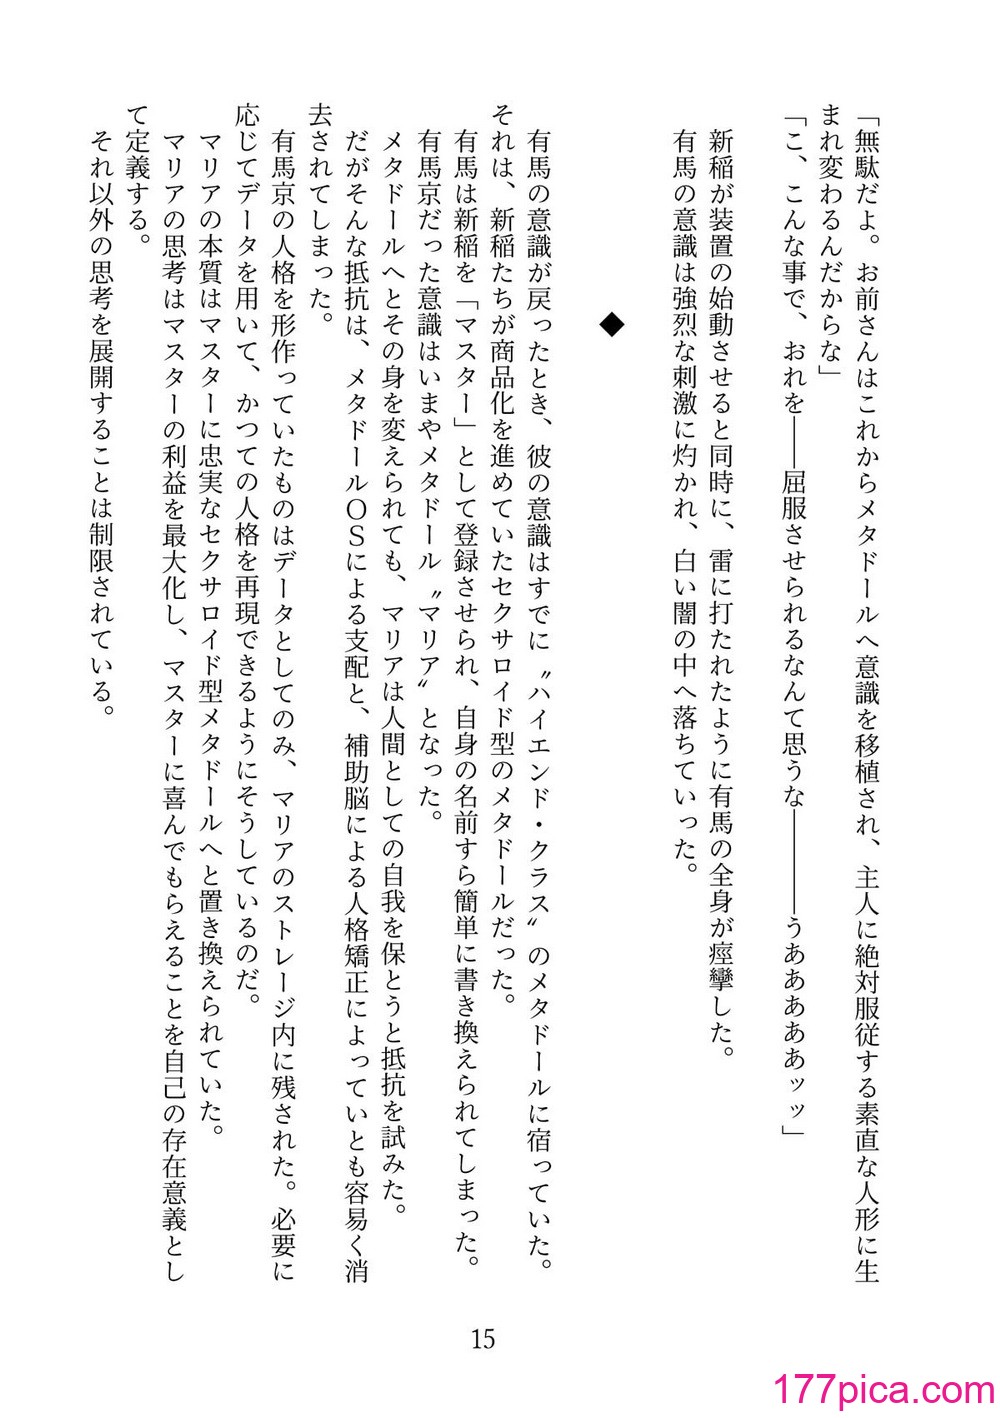 「無駄だよ。お前さんはこれからメタドールへ意識を移植され、主人に絶対服従する素直な人形に生
まれ変わるんだからな」
「こ、こんな事で、おれを――屈服させられるなんて思うな――――うああああああッッ」
新稲が装置の始動させると同時に、雷に打たれたように有馬の全身が痙攣した。
有馬の意識は強烈な刺激に灼かれ、白い闇の中へ落ちていった。
◆
有馬の意識が戻ったとき、彼の意識はすでに〝ハイエンド・クラス〟のメタドールに宿っていた。
それは、新稲たちが商品化を進めていたセクサロイド型のメタドールだった。
有馬は新稲を「マスター」として登録させられ、自身の名前すら簡単に書き換えられてしまった。
有馬京だった意識はいまやメタドール〝マリア〟となった。
メタドールへとその身を変えられても、マリアは人間としての自我を保とうと抵抗を試みた。
だがそんな抵抗は、メタドールＯＳによる支配と、補助脳による人格矯正によっていとも容易く消
去されてしまった。
有馬京の人格を形作っていたものはデータとしてのみ、マリアのストレージ内に残された。必要に
応じてデータを用いて、かつての人格を再現できるようにそうしているのだ。
マリアの本質はマスターに忠実なセクサロイド型メタドールへと置き換えられていた。
マリアの思考はマスターの利益を最大化し、マスターに喜んでもらえることを自己の存在意義とし
て定義する。
それ以外の思考を展開することは制限されている。
15
177pica.com